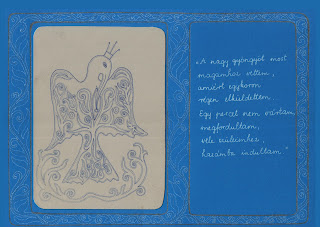 „A nagy gyöngyöt most
magamhoz vettem,
amiért egykoron
régen elküldettem.
Egy percet nem vártam,
megfordultam,
vele szüleimhez,
hazámba indultam."